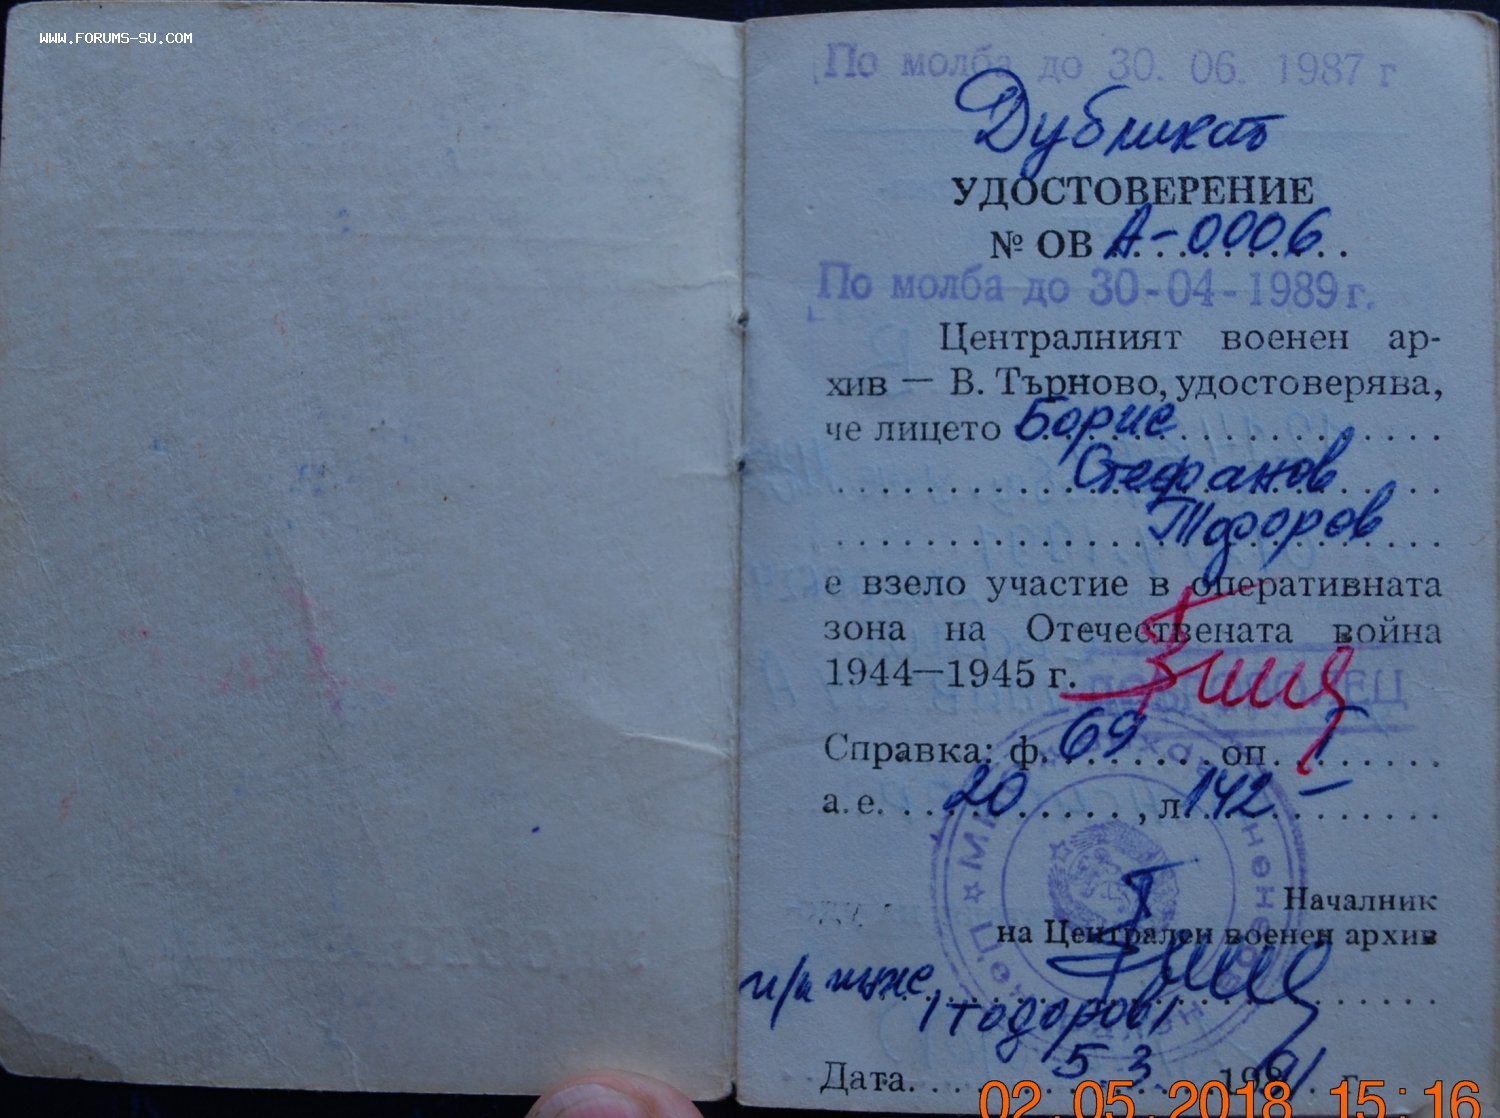 WWW.FORUMS-SU.COM
По молба до 30. 06. 1987 г
Дубликат
УДОСТОВЕРЕНИЕ
№ ОВ А-0006
По молба до 30-04-1989 г.
Централният военен ар-
хив — В. Търново, удостоверява,
че лицето Борис
Стефанов
Тодоров
е взело участие в оперативната
зона на Отечествената война
1944—1945 г.
Справка: ф. 69 оп. I
а. е. 20, л 142
Началник
на Централен военен архив
/Тодоров/
Дата. 5. 3. 1981 г.
02.05.2018 15:16